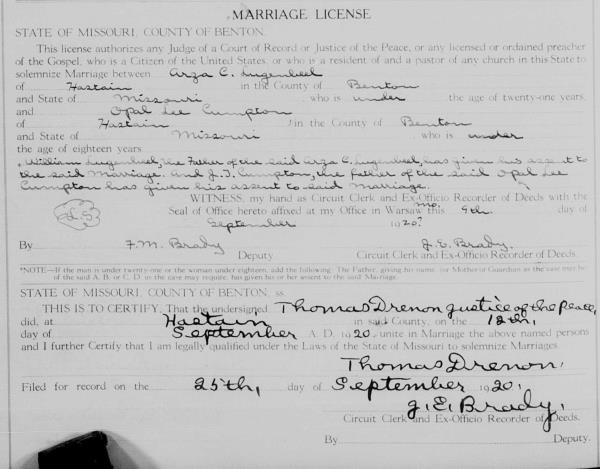 MARRIAGE LICENSE
STATE OF MISSOURI, COUNTY OF BENTON.
This license authorizes any Judge of a Court of Record or Justice of the Peace, or any licensed or ordained preacher
of the Gospel, who is a Citizen of the United States, or who is a resident of and a pastor of any church in this State to
solemnize Marriage between Arza C. Lugenbeel
of Hastain in the County of Benton
and State of Missouri, who is under the age of twenty-one years,
and Opal Lee Cumpton
of Hastain in the County of Benton
and State of Missouri who is under
the age of eighteen years
William Lugenbeel, the Father of the said Arza C. Lugenbeel, has given his assent to
the said Marriage. and J.T. Cumpton, the father of the said Opal Lee
Cumpton has given his assent to said marriage.
WITNESS, my hand as Circuit Clerk and Ex-Officio Recorder of Deeds with the
Seal of Office hereto affixed at my Office in Warsaw Mo. this 9th. day of
L.S.
September 1920.
By F.M. Brady Deputy J.E. Brady.
Circuit Clerk and Ex-Officio Recorder of Deeds.
*NOTE—If the man is under twenty-one or the woman under eighteen, add the following: The Father, giving his name, (or Mother or Guardian as the case may be
of the said A. B. or C. D. as the case may require, has given his or her assent to the said Marriage.
STATE OF MISSOURI, COUNTY OF BENTON, ss.
THIS IS TO CERTIFY, That the undersigned Thomas Drenon Justice of the Peace,
did, at Hastain in said County, on the 12th,
day of September A. D. 1920 unite in Marriage the above named persons
and I further Certify that I am legally qualified under the Laws of the State of Missouri to solemnize Marriages.
Thomas Drenon,
Filed for record on the 25th, day of September 1920.
J.E. Brady,
Circuit Clerk and Ex-Officio Recorder of Deeds.
By Deputy.